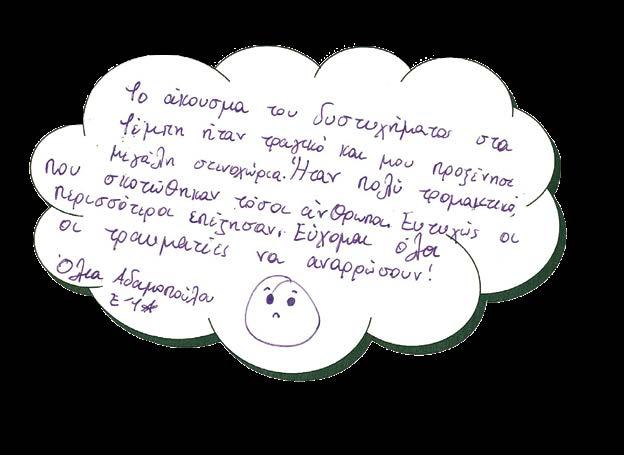 Το άκουσμα του δυστυχήματος στα
Τέμπη ήταν τραγικό και μου προξένησε
μεγάλη στενοχώρια. Ήταν πολύ τρομακτικό,
που σκοτώθηκαν τόσοι άνθρωποι. Ευτυχώς οι
περισσότεροι επέζησαν. Εύχομαι όλοι
οι τραυματίες να αναρρώσουν!
Όλια Αδαμοπούλου